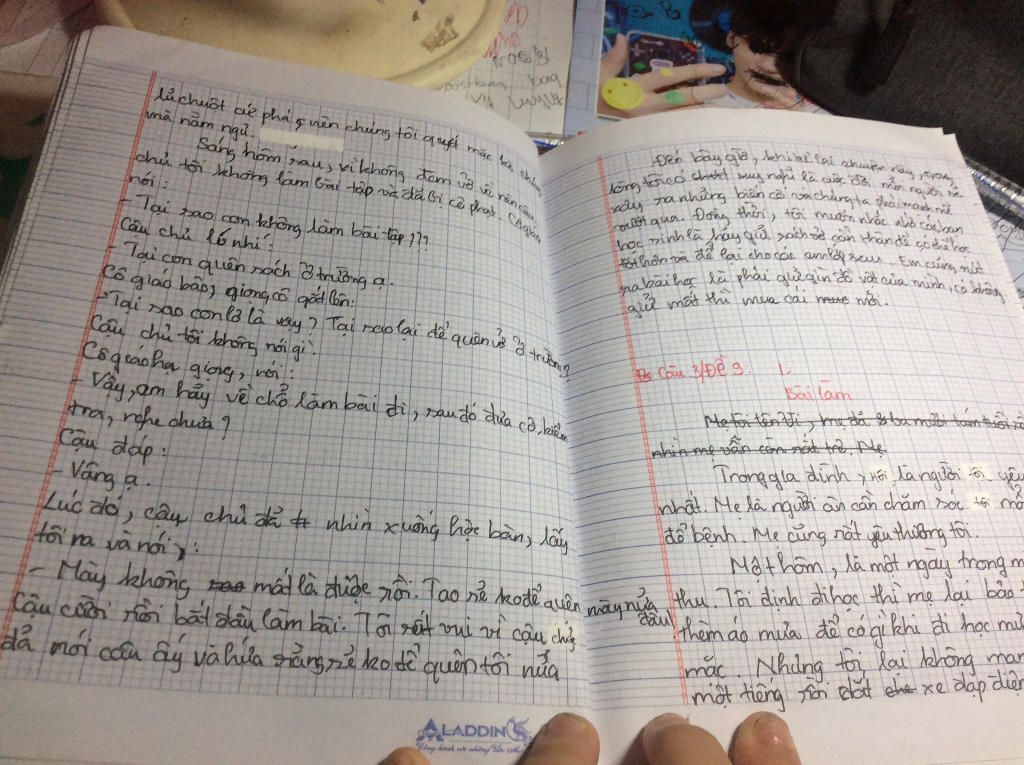 lũ chuột cứ phá, nên chúng tôi quyết mặc kệ chúng
mà nằm ngủ.
Sáng hôm sau, vì không đem vở về nên cậu
chủ tôi không làm bài tập và đã bị cô phạt. Cô giáo
nói:
- Tại sao con không làm bài tập???
Cậu chủ lí nhí:
- Tại con quên sách ở trường ạ.
Cô giáo bảo, giọng cô gắt lên:
- Tại sao con lơ là vậy? Tại sao lại để quên vở ở trường?
Cậu chủ tôi không nói gì.
Cô giáo hạ giọng, nói:
- Vậy, em hãy về chổ làm bài đi, sau đó đưa cô, kiểm
tra, nghe chưa?
Cậu đáp:
- Vâng ạ.
Lúc đó, cậu chủ đã nhìn xuống học bàn, lấy
tôi ra và nói:
- Mày không mất là được rồi. Tao sẽ ko để quên mày nữa
đâu
Cậu cười rồi bắt đầu làm bài. Tôi rất vui vì cậu chủ
đã nói câu ấy và hứa rằng sẽ ko để quên tôi nữa
ALADDIN
Đến bây giờ, khi kể lại chuyện này, trong
lòng tôi có suy nghĩ là cuộc đời mỗi người sẽ
xảy ra những biến cố và chúng ta phải mạnh mẽ
vượt qua. Đồng thời, tôi muốn nhắc nhở các bạn
học sinh là hãy giữ sách vở cẩn thận để có thể học
tốt hơn và để lại cho các em lớp sau. Em cũng rút
ra bài học là phải giữ gìn đồ vật của mình, có không
giữ mất thì mua cái mới.
Câu 3/ĐỀ 9:
Bài làm
Mẹ tôi tên Di, mẹ đã ba mươi tám tuổi
nhìn mẹ vẫn còn rất trẻ. Mẹ
Trong gia đình, là người tôi yêu
nhất. Mẹ là người ân cần chăm sóc tôi mỗ
đổ bệnh. Mẹ cũng rất yêu thương tôi.
Một hôm, là một ngày trong m
thu. Tôi định đi học thì mẹ lại bảo
thêm áo mưa để có gì khi đi học mư
mặc. Nhưng tôi lại không man
một tiếng rồi dắt xe đạp điện